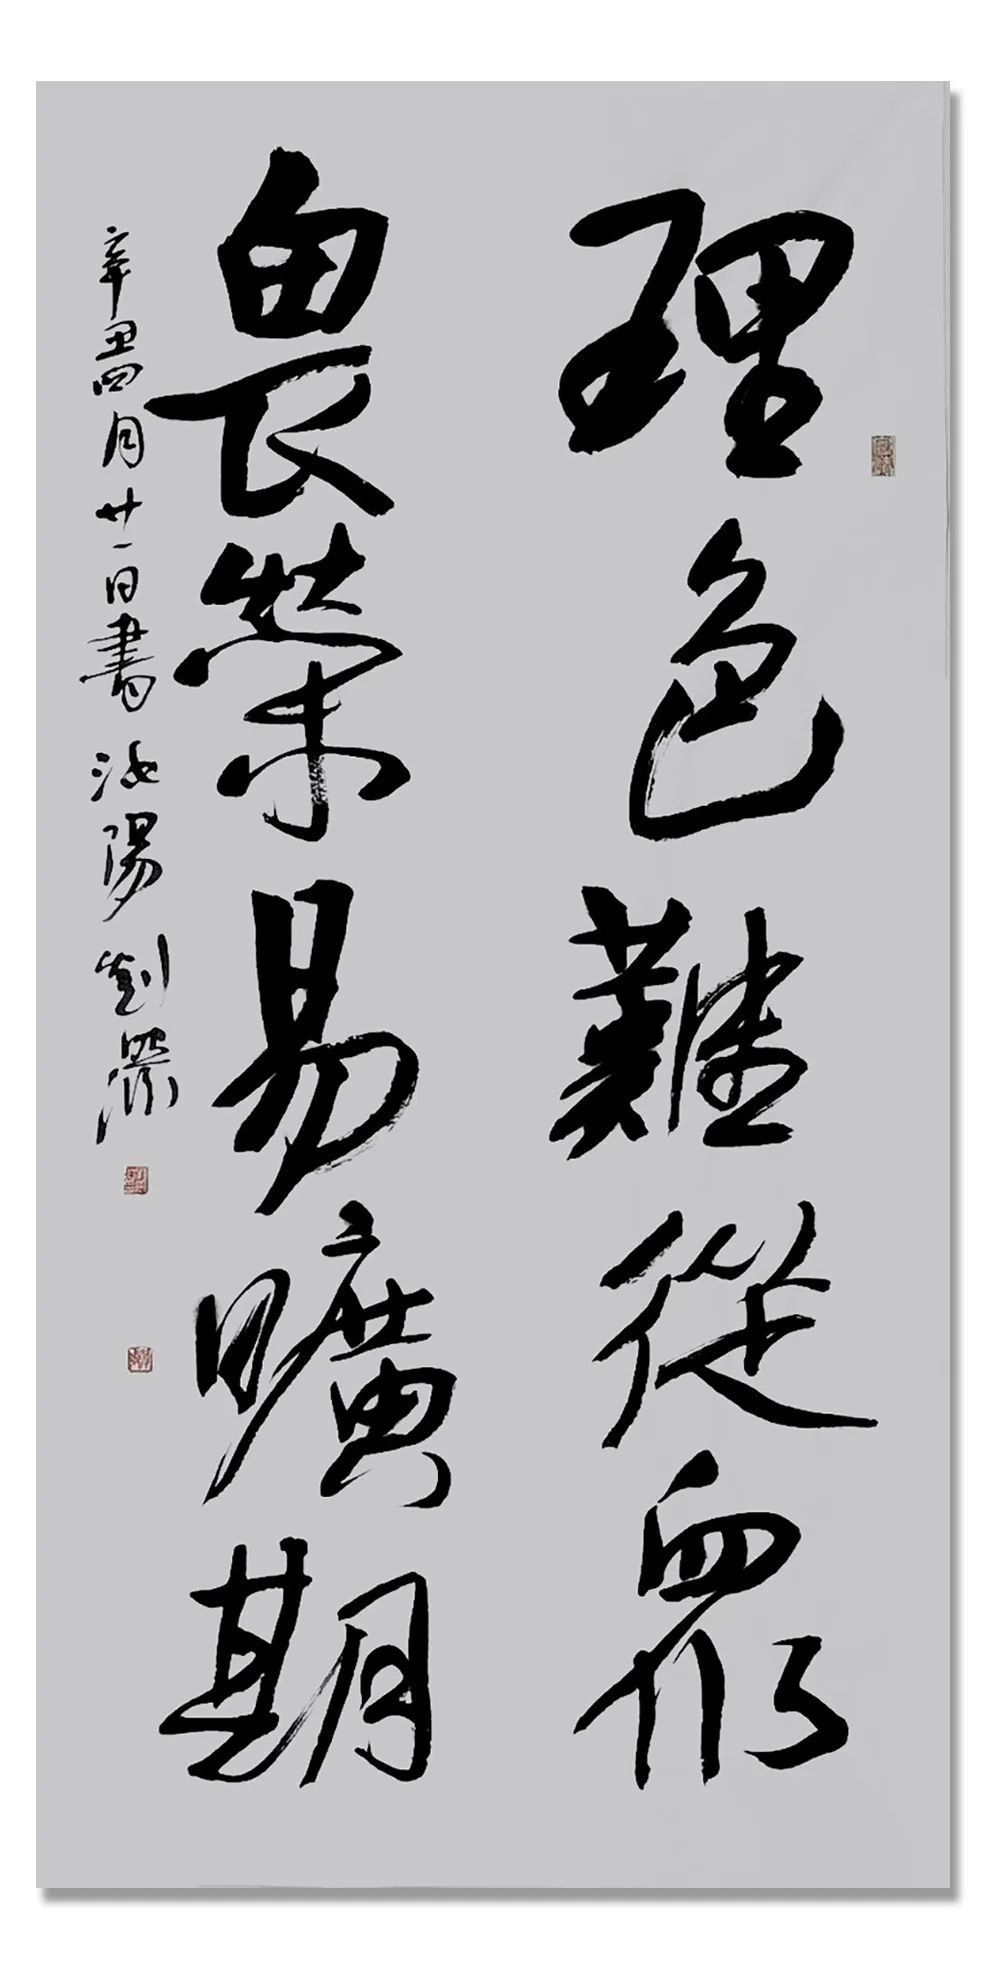 理色難從衆
畏榮易曠期
辛丑四月廿一日書汝陽劉